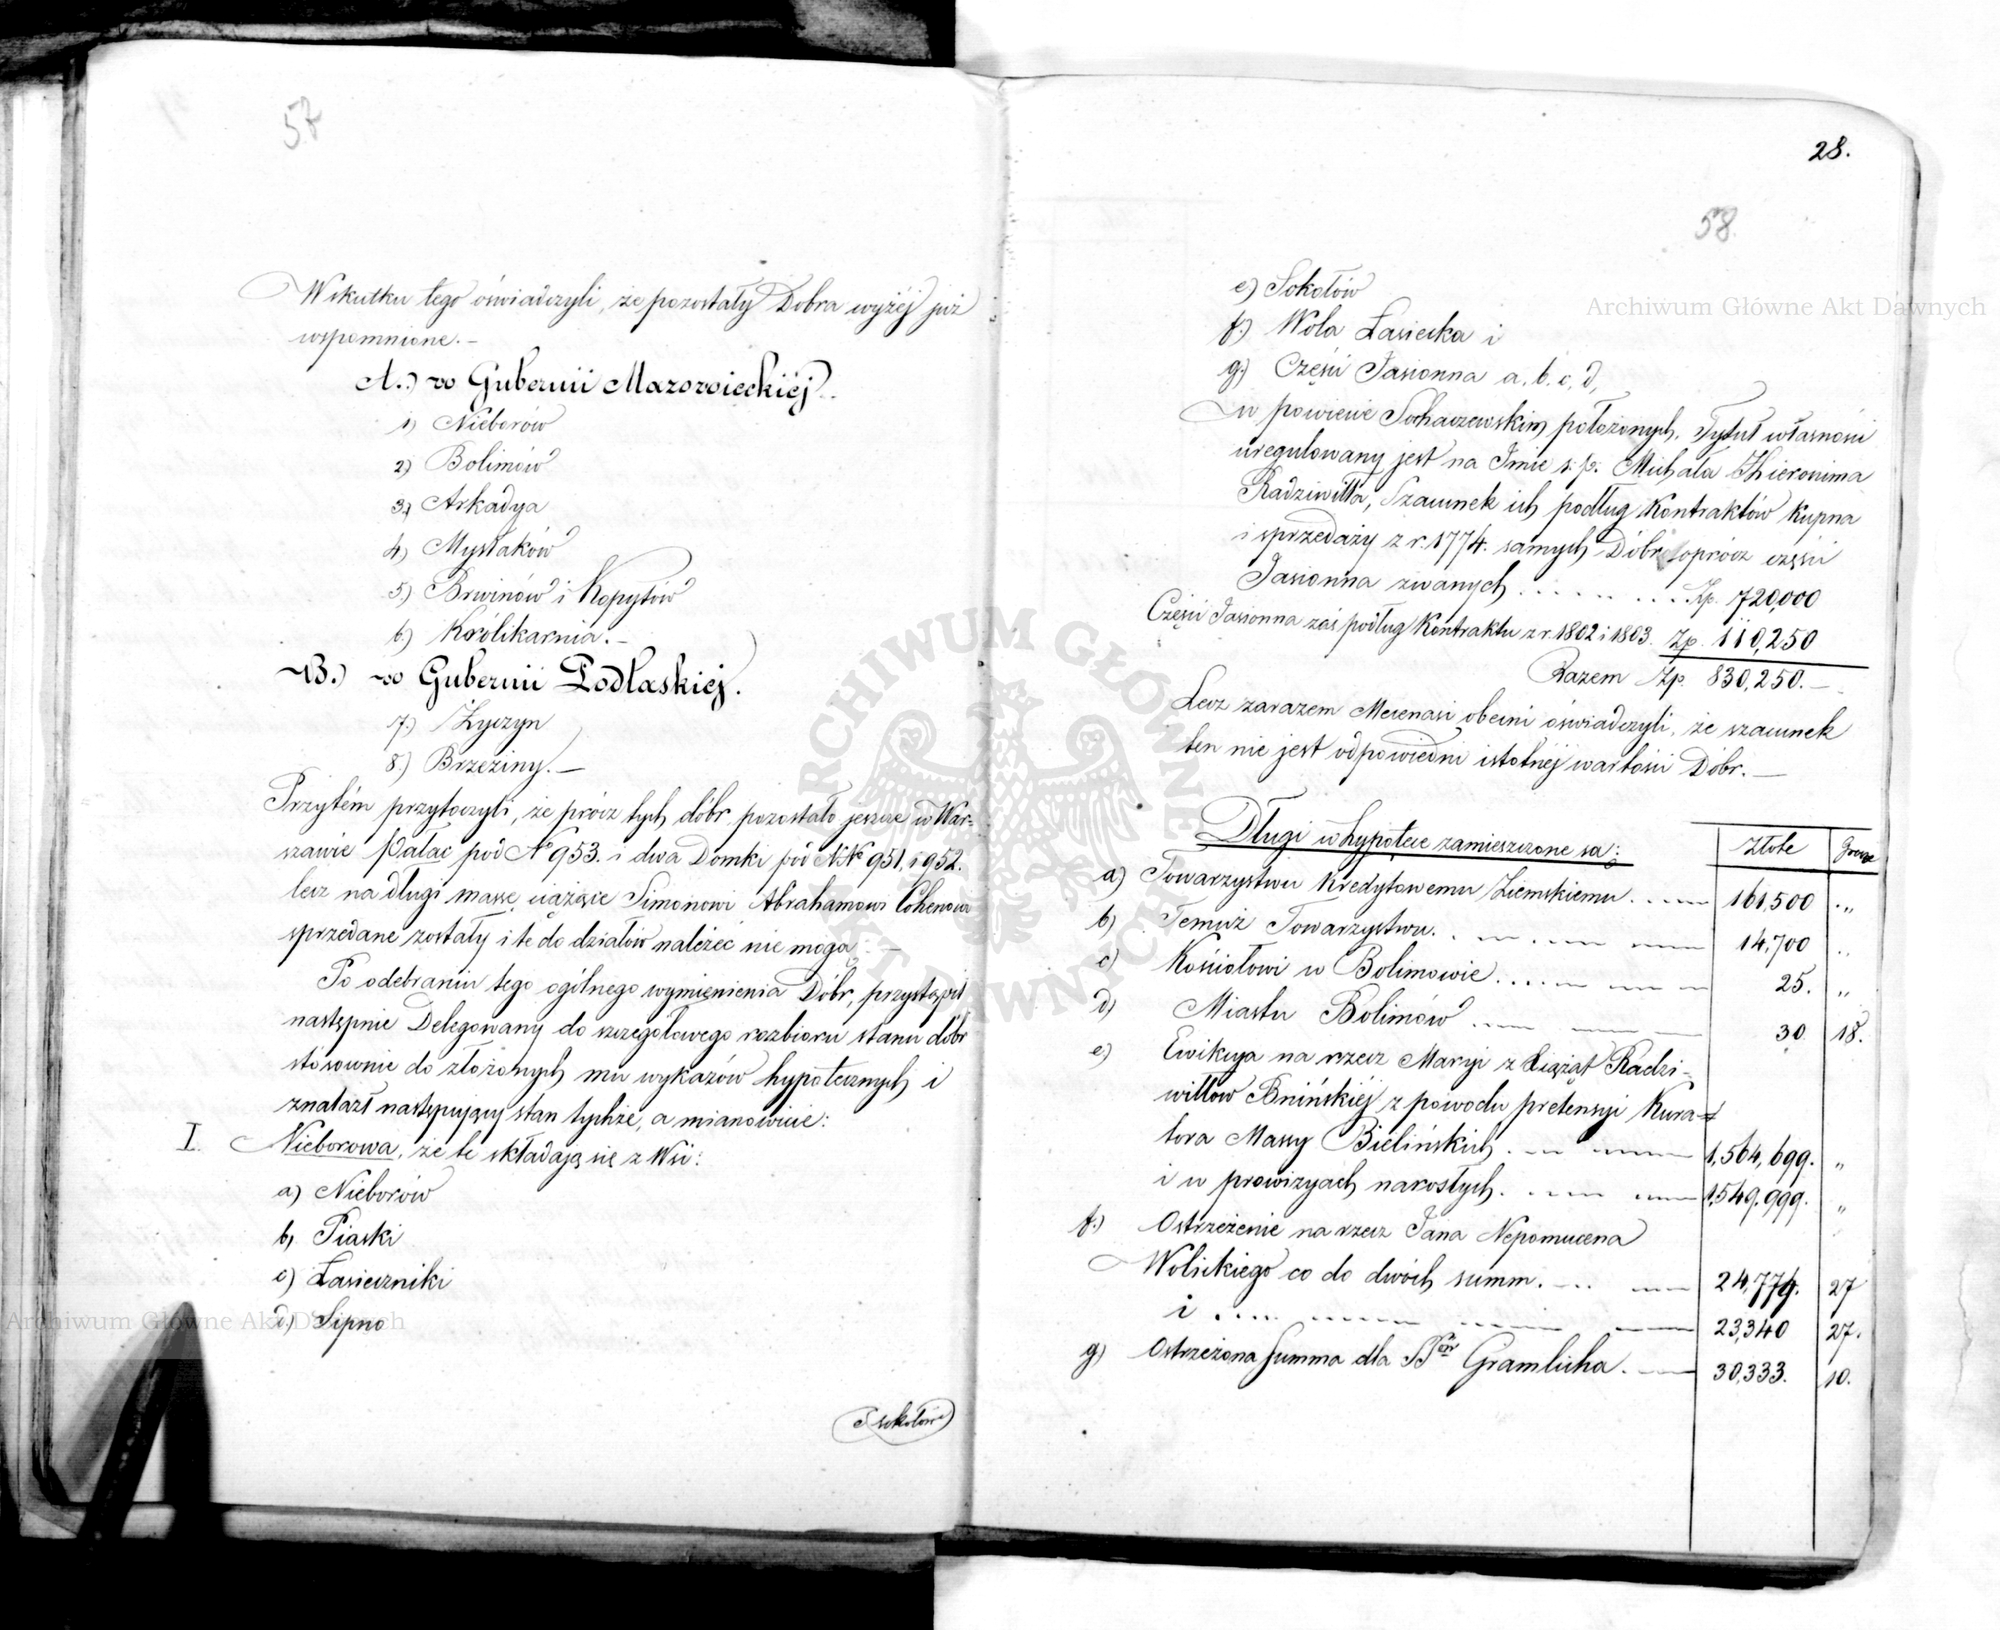 57
Wskutku tego oświadczyli, że pozostały Dobra wyżéj już
wspomnione.-
A.) w Gubernii Mazowieckiéj.
1) Nieborów
2) Bolimów
3) Arkadya
4) Mysłaków
5.) Brwinów i Kopytów
6.) Królikarnia.-
B.) w Gubernii Podlaskiéj.
7.) Życzyn
8.) Brzeziny.-
Przytém przytoczyli, że prócz tych dóbr pozostało jeszcze w War-
szawie Pałac pod No 953. i dwa Domki pod NNo 951, i 952.
lecz na długi massę ciążące Simonowi Abrahamowi Cohenowi
sprzedane zostały i te do działów należéć nie mogą.-
Po odebraniu tego ogólnego wymienienia Dóbr, przystąpił
następnie Delegowany do szczegółowego rozbioru stanu dóbr
stósownie do złożonych mu wykazów hypotecznych i
znalazł następujący stan tychże, a mianowicie:
I. Nieborowa, że te składają się z Wsi:
a) Nieborów
b) Piaski
c) Łasieczniki
d.) Sipno
Sokołów
28.
58
e) Sokołów
f.) Wola Łasiecka i
g.) Części Jasionna a. b. c. d,
w powiecie Sochaczewskim położonych. Tytuł własności
uregulowany jest na Imie ś. p. Michała Hieronima
Radziwiłła, Szacunek ich podług Kontraktów Kupna
i sprzedaży z r. 1774. samych Dóbr oprócz części
Jasionna zwanych . . . . . . . . . Zp. 720,000
Części Jasionna zaś podług Kontraktu z r. 1802 i 1803. Zp. 110,250
Razem Zp. 830,250.-
Lecz zarazem Mecenasi obecni oświadczyli, że szacunek
ten nie jest odpowiedni istotnéj wartości Dóbr.-
Długi w hypotece zamieszczone są: Złote Grosze
a) Towarzystwu Kredytowemu Ziemskiemu . . . . 161,500 . „
b) Temuż Towarzystwu. . . . . 14,700 . .
c) Kościołowi w Bolimowie . . . . . 25. „
d) Miastu Bolimów . . . . 30 18.
e) Ewikcya na rzecz Maryi z Xiążąt Radzi-
wiłłów Bnińskiéj z powodu pretensyi Kura-
tora Massy Bielińskich . . . . 1,564,699. „
i w prowizyach narosłych. . . . . 1,549,999. „
f.) Ostrzeżenie na rzecz Jana Nepomucena
Wolickiego co do dwóch summ. . . . 24,774. 27
i . . . . . . . . 23,340 27.
g) Ostrzeżona summa dla Gramlicha. . . 30,333. 10.
Archiwum Główne Akt Dawnych
Archiwum Główne Akt Dawnych
ARCHIWUM GŁÓWNE AKT DAWNYCH